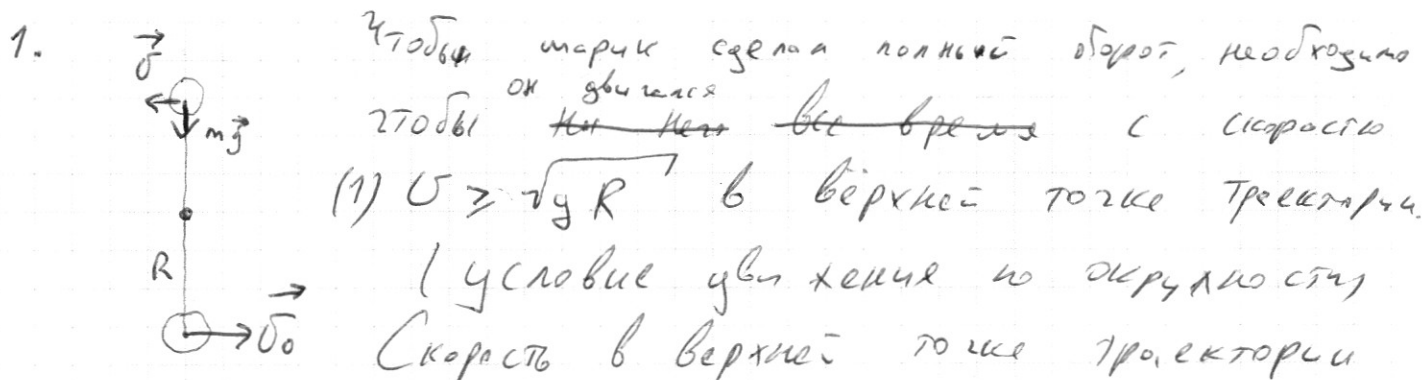 1. Чтобы шарик сделал полный оборот, необходимо
чтобы он двигался с скоростью
(1) υ ≥ √gR в верхней точке траектории.
(условие движения по окружности)
Скорость в верхней точке траектории
υ⃗
mg⃗
R
υ⃗₀